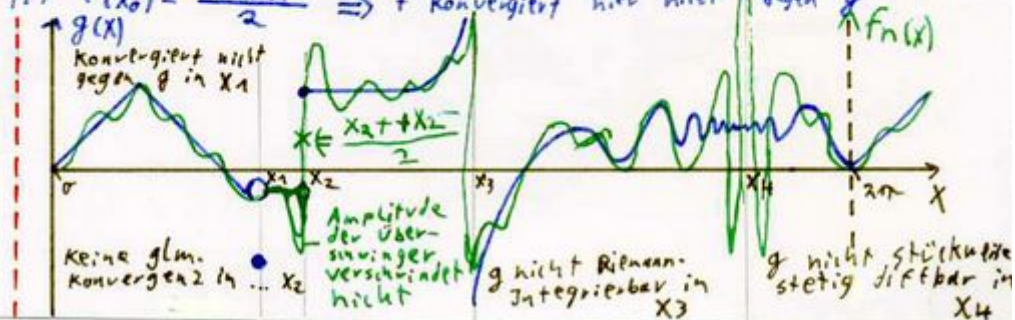 f(x0)= 2 => f konvergiert hier nicht gegen g
g(x)
fn(x)
konvergiert nicht
gegen g in x1
x2+ + x2-
2
0
x1
x2
x3
x4
2π
x
keine glm.
konvergenz in ... x2
Amplitude
der Über-
schwinger
verschwindet
nicht
g nicht Riemann-
Integrierbar in
x3
g nicht stückweise
stetig diffbar in
x4